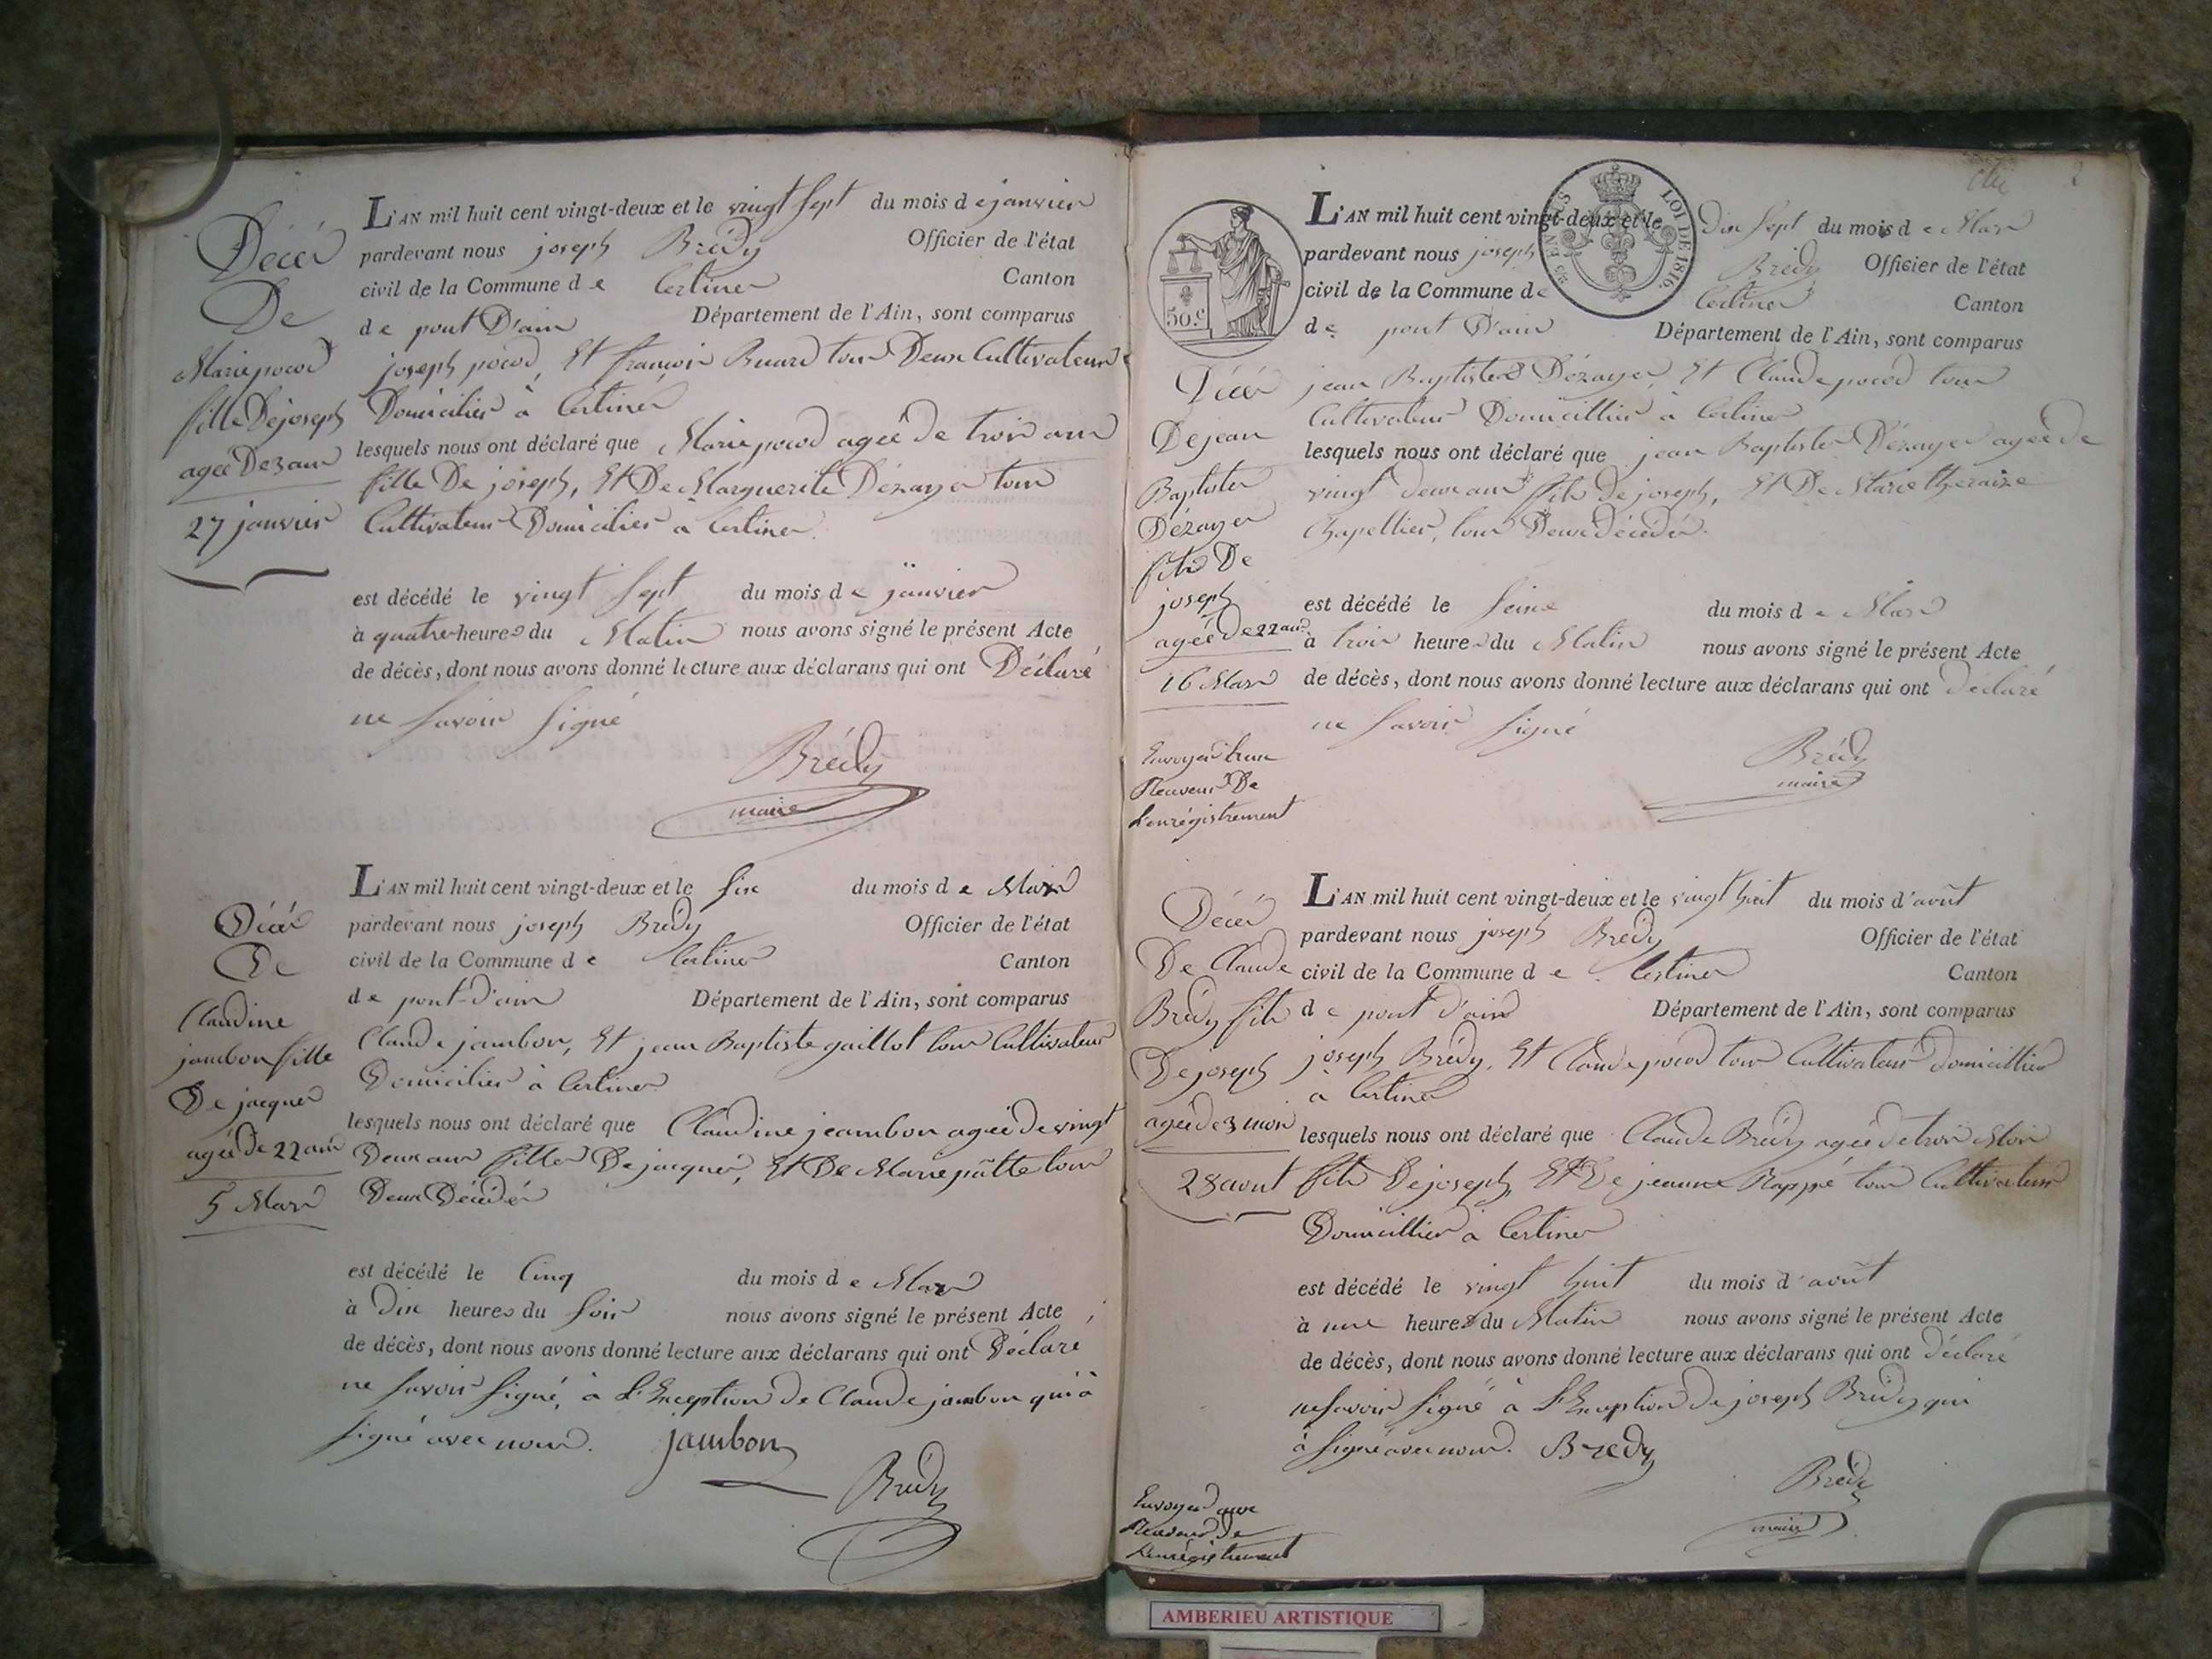 Décès
De
Marie pocod
fille De joseph
agée De 3 ans
27 janvier
L'AN mil huit cent vingt-deux et le vingt sept du mois de janvier
pardevant nous joseph Brédy Officier de l'état
civil de la Commune de Certines Canton
de pont D'ain Département de l'Ain, sont comparus
joseph pocod, Et françois Buard tous Deux Cultivateurs
Domicilies à Certines
lesquels nous ont déclaré que Marie pocod agée de trois ans
fille De joseph, Et De Marguerite Dézayes tous
Cultivateurs Domicilies à Certines.
est décédé le vingt sept du mois de janvier
à quatre heures du Matin nous avons signé le présent Acte
de décès, dont nous avons donné lecture aux déclarans qui ont Déclaré
ne savoir signé
Brédy
maire
Décès
De
Claudine
jambon fille
De jacques
agée De 22 ans
5 Mars
L'AN mil huit cent vingt-deux et le six du mois de Mars
pardevant nous joseph Brédy Officier de l'état
civil de la Commune de Certines Canton
de pont-d'ain Département de l'Ain, sont comparus
Claude jambon, Et jean Baptiste gaillot tous Cultivateurs
Domicilies à Certines
lesquels nous ont déclaré que Claudine jeambon agée de vingt
Deux ans filles De jacques, Et De Marie pâtte tous
Deux Décédés
est décédé le Cinq du mois de Mars
à Dix heures du soir nous avons signé le présent Acte
de décès, dont nous avons donné lecture aux déclarans qui ont Déclaré
ne savoir signé, à L'Exception de Claude jambon qui à
signé avec nous. jambon
Brédy
50.c
EN SUS
LOI DE 1816.
Décès
De jean
Baptistes
Dézayes
fils De
joseph
agée De 22 ans
16 Mars
Envoyer
Receveur De
L'enrégistrement
L'AN mil huit cent vingt-deux et le Dix sept du mois de Mars
pardevant nous joseph Brédy Officier de l'état
civil de la Commune de Certines Canton
de pont D'ain Département de l'Ain, sont comparus
jean Baptistes Dézayes, Et Claude pocod tous
Cultivateurs Domicilliés à Certines
lesquels nous ont déclaré que jean Baptistes Dézayes agée de
vingt deux ans fils de joseph, Et De Marie theraize
Chapellier, tous Deux Décédés.
est décédé le seize du mois de Mars
à trois heures du Matin nous avons signé le présent Acte
de décès, dont nous avons donné lecture aux déclarans qui ont déclaré
ne savoir signé
Brédy
maire
Décès
De Claude
Brédy fils
De joseph
agée de 3 mois
28 aout
Envoyer aux
Receveur De
L'enrégistrement
L'AN mil huit cent vingt-deux et le vingt huit du mois d'août
pardevant nous joseph Brédy Officier de l'état
civil de la Commune de Certines Canton
de pont d'ain Département de l'Ain, sont comparus
joseph Brédy, Et Claude pocod tous Cultivateurs domicilliés
à Certines
lesquels nous ont déclaré que Claude Brédy agée de trois Mois
fils De joseph, Et De jeanne Rappé tous Cultivateurs
Domicilliés à Certines
est décédé le vingt huit du mois d'août
à une heures du Matin nous avons signé le présent Acte
de décès, dont nous avons donné lecture aux déclarans qui ont déclaré
ne savoir signé à L'Exception De joseph Brédy qui
à signé avec nous. Bredy
Brédy
maire
AMBERIEU ARTISTIQUE